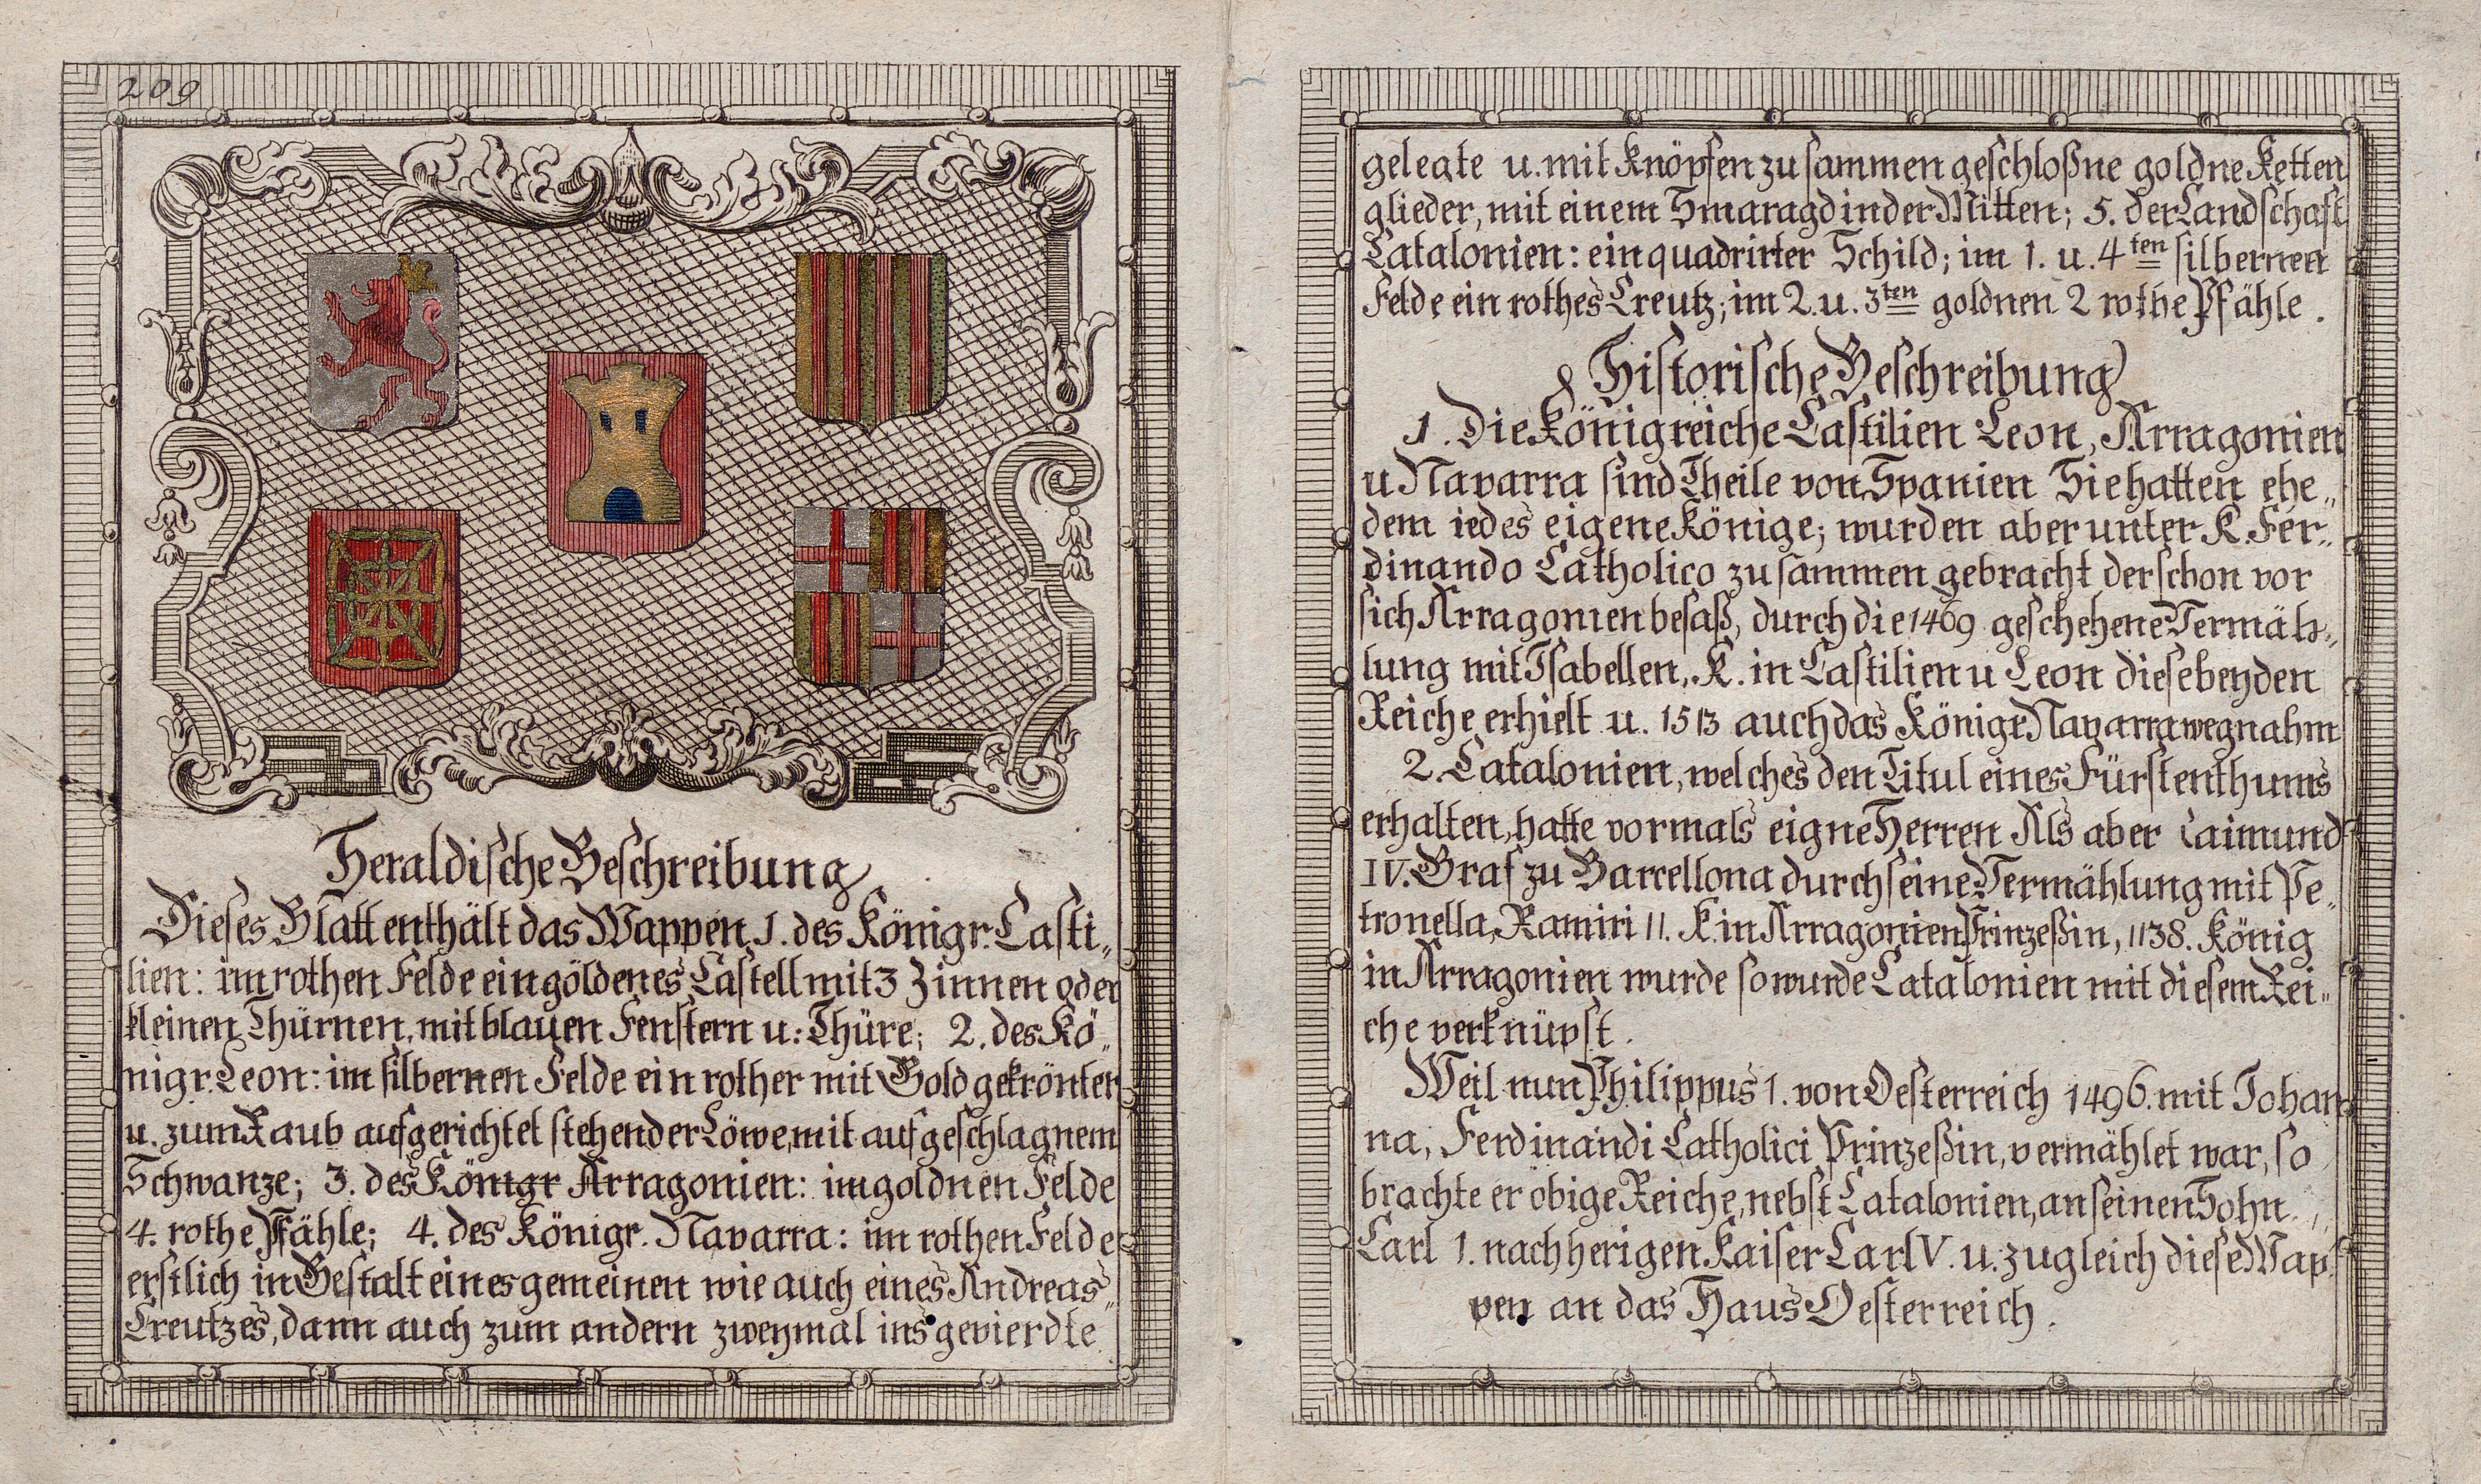 209
Heraldische Beschreibung
Dieses Blatt enthält das Wappen, 1. des Königr. Casti„
lien: im rothen Felde ein göldenes Castell mit 3 Zinnen oder
kleinen Thürnen, mit blauen Fenstern u. Thüre; 2. des Kö„
nigr. Leon: im silbernen Felde ein rother mit Gold gekrönter
u. zum Raub aufgerichtet stehender Löwe, mit aufgeschlagnem
Schwanze; 3. des Königr Arragonien: im goldnen Felde
4. rothe Pfähle; 4. des Königr. Navarra: im rothen Felde
erstlich in Gestalt eines gemeinen wie auch eines Andreas„
Creutzes, dann auch zum andern zweymal ins gevierdte
gelegte u. mit Knöpfen zusammen geschloßne goldne Ketten
glieder, mit einem Smaragd in der Mitten; 5. der Landschaft
Catalonien: ein quadrirter Schild; im 1. u. 4ten silbernen
Felde ein rothes Creutz; im 2. u. 3ten goldnen 2 rothe Pfähle.
Historische Beschreibung
1. Die Königreiche Castilien Leon, Arragonien
u Navarra sind Theile von Spanien Sie hatten ehe„
dem iedes eigene Könige; wurden aber unter K. Fer„
dinando Catholico zusammen gebracht der schon vor
sich Arragonien besaß, durch die 1469 geschehene Vermäh„
lung mit Isabellen, K. in Castilien u Leon diese beyden
Reiche erhielt u. 1513 auch das Königr Navarra wegnahm
2. Catalonien, welches den Titul eines Fürstenthums
erhalten, hatte vormals eigne Herren Als aber Raimund
IV. Graf zu Barcellona durch seine Vermählung mit Pe„
tronella, Ramiri II. K. in Arragonien Prinzeßin, 1138. König
in Arragonien wurde so wurde Catalonien mit diesem Rei„
che verknüpft.
Weil nun Philippus 1. von Oesterreich 1496. mit Johan„
na, Ferdinandi Catholici Prinzeßin, vermählet war, so
brachte er obige Reiche, nebst Catalonien, an seinen Sohn
Carl 1. nachherigen Kaiser Carl V. u. zugleich diese Wap„
pen an das Haus Oesterreich.